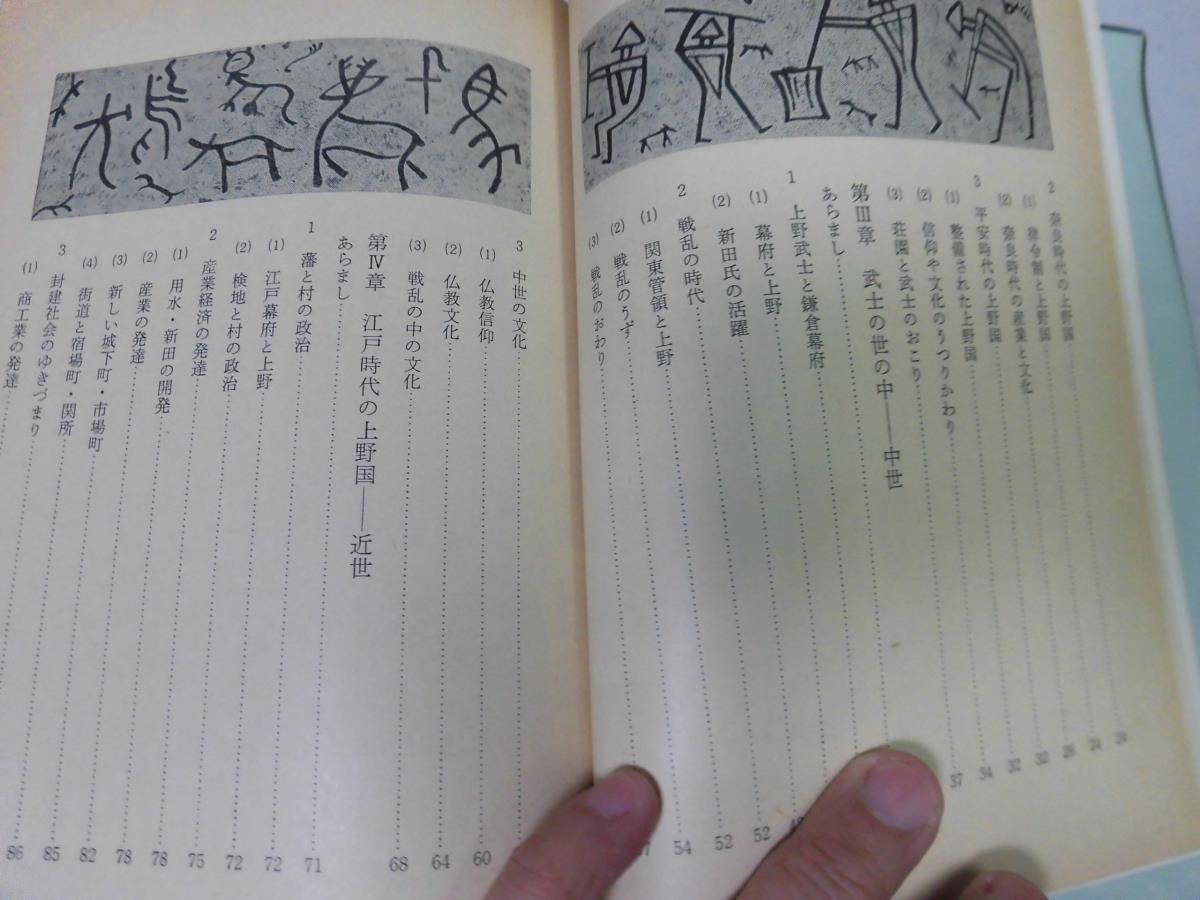 2 奈良時代の上野国 24
(1) 律令制と上野国 24
(2) 奈良時代の産業と文化
3 平安時代の上野国 32
(1) 整備された上野国 32
(2) 信仰や文化のうつりかわり 34
(3) 荘園と武士のおこり 37
第Ⅲ章 武士の世の中——中世
あらまし
1 上野武士と鎌倉幕府
(1) 幕府と上野
(2) 新田氏の活躍 52
2 戦乱の時代 52
(1) 関東管領と上野 54
(2) 戦乱のうず
(3) 戦乱のおわり
3 中世の文化
(1) 仏教信仰 60
(2) 仏教文化 64
(3) 戦乱の中の文化 68
第Ⅳ章 江戸時代の上野国——近世
あらまし 71
1 藩と村の政治 72
(1) 江戸幕府と上野 72
(2) 検地と村の政治 75
2 産業経済の発達 78
(1) 用水・新田の開発 78
(2) 産業の発達 82
(3) 新しい城下町・市場町 85
(4) 街道と宿場町・関所 86
3 封建社会のゆきづまり
(1) 商工業の発達